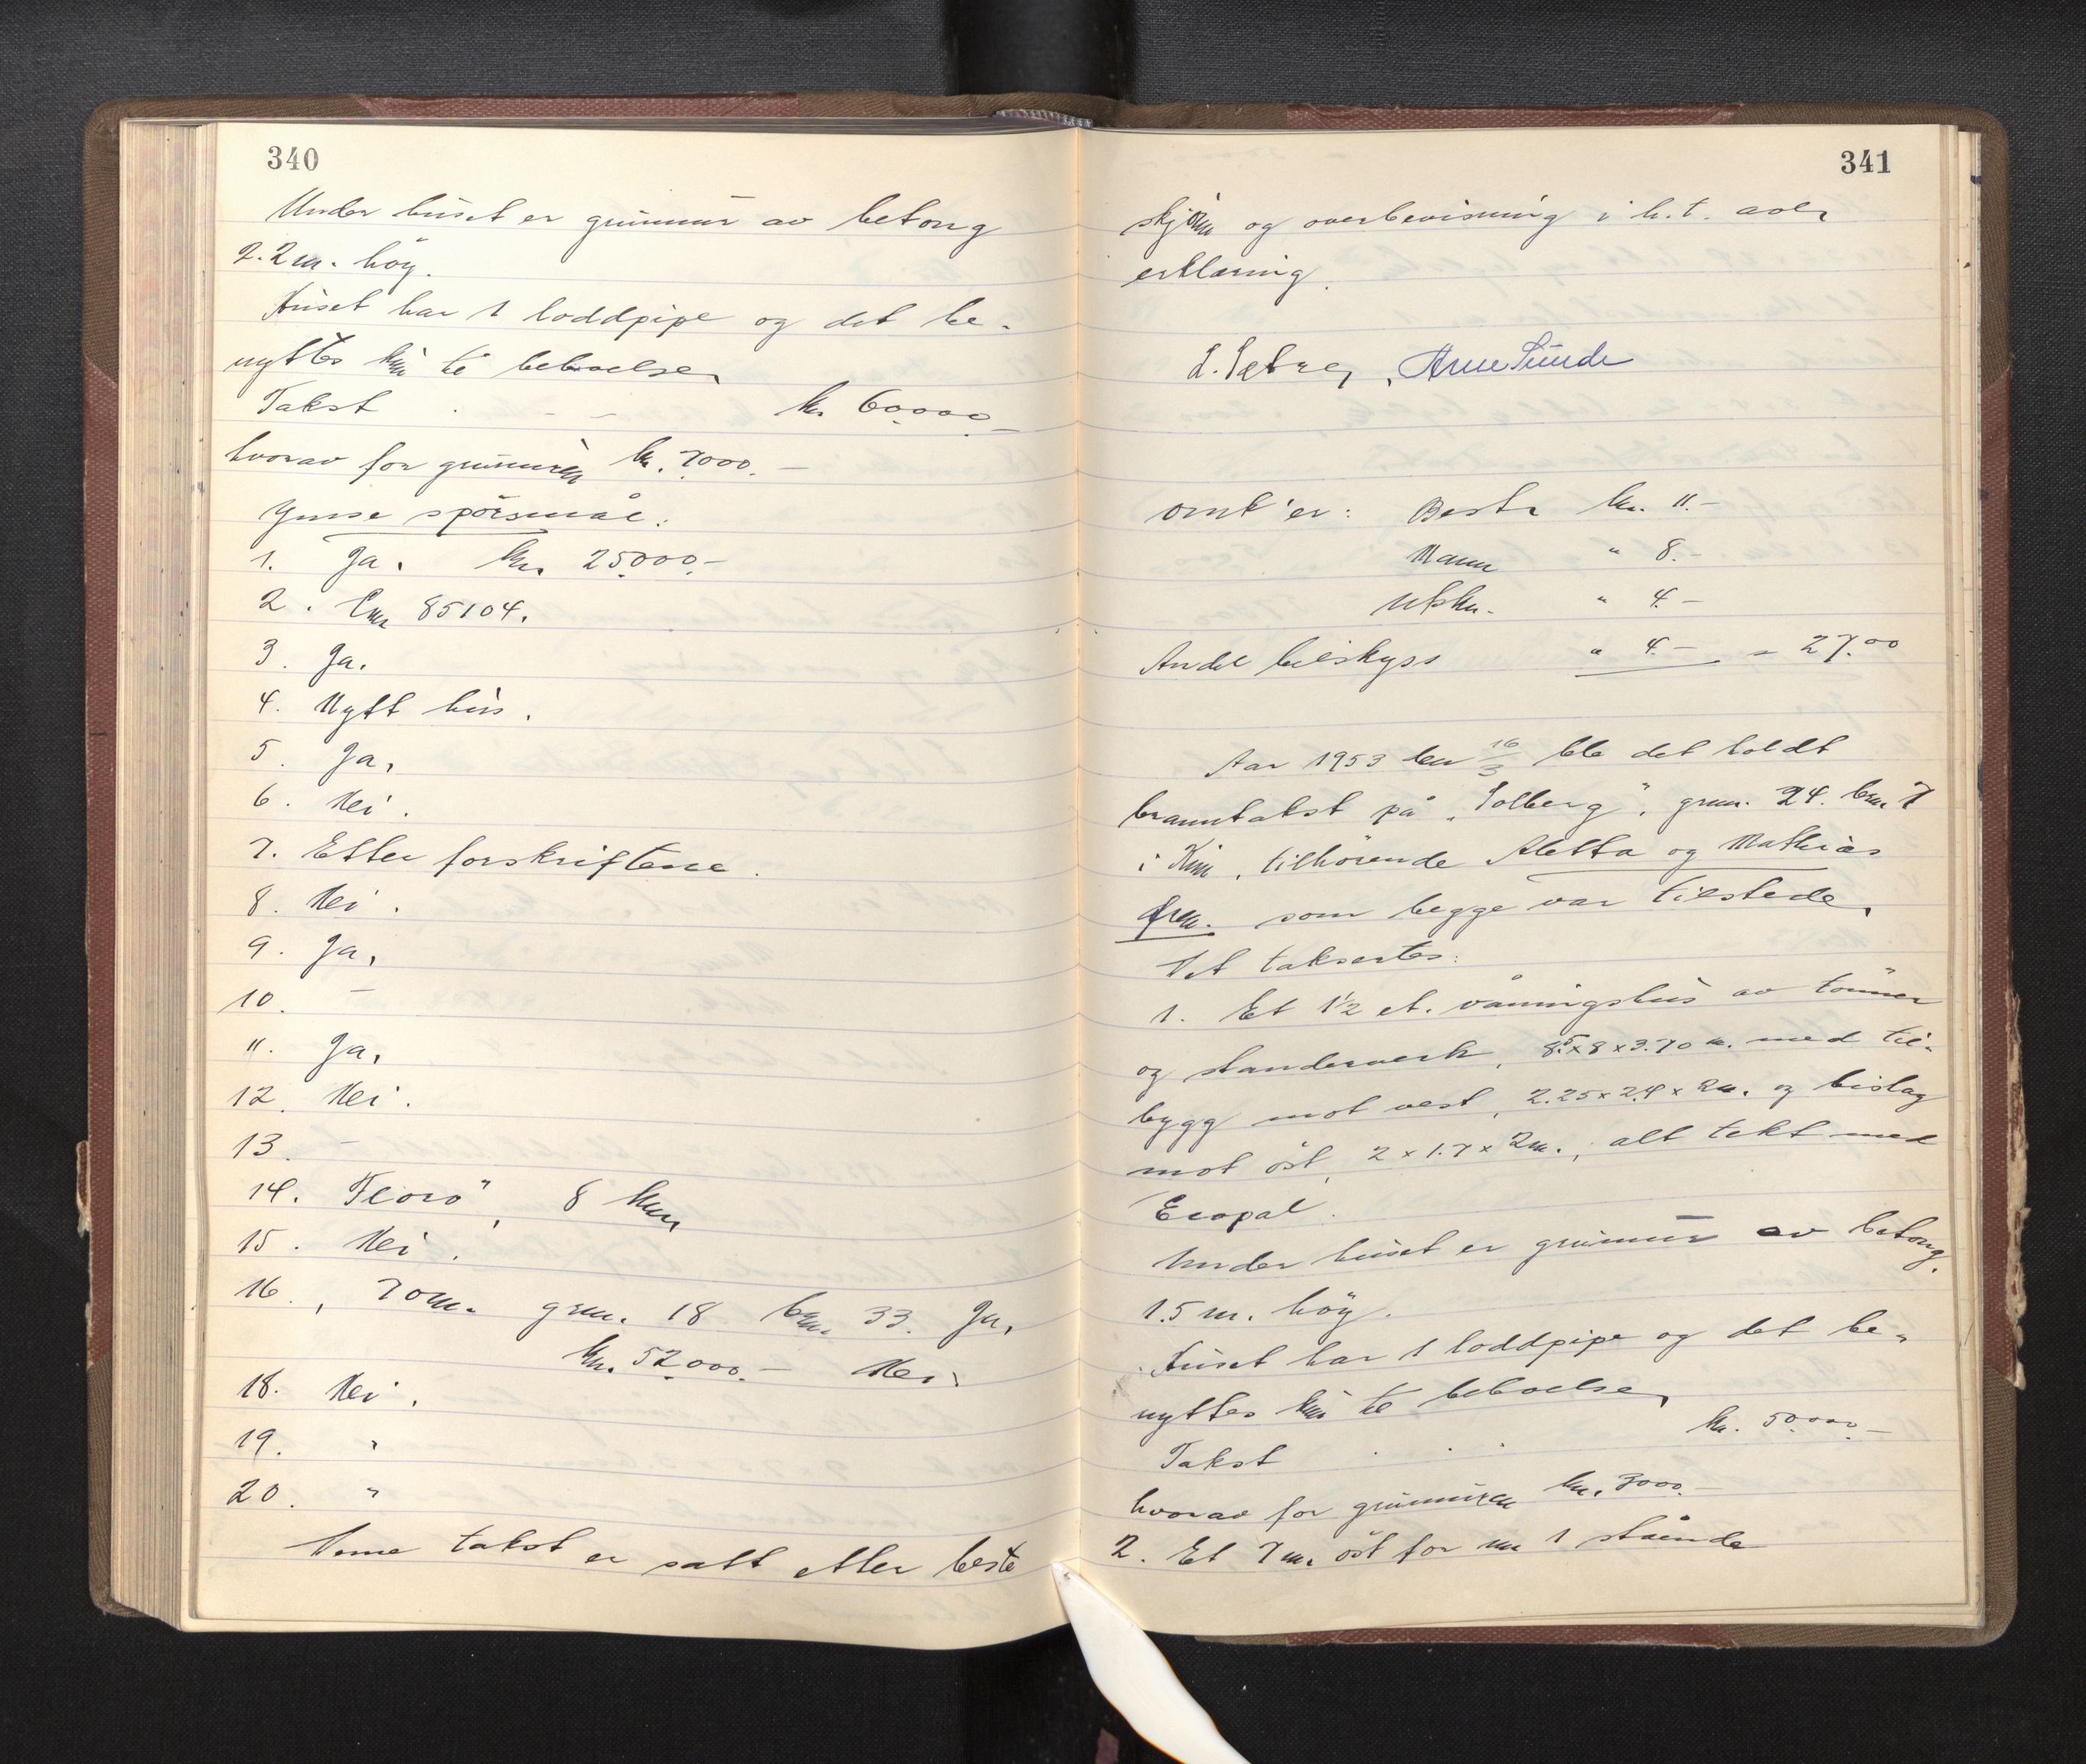 340
Under huset er grunmur av betong
2.2 m. høy.
Huset har 1 loddpipe og det be-
nyttes kun til beboelse.
Takst . - - kr. 60.000.-
hvorav for grunmuren kr. 7000.-
Ymse spörsmål:
1. Ja. kr. 25.000.-
2. Lnr 85104.
3. Ja.
4. Nytt hus.
5. Ja.
6. Nei.
7. Etter forskriftene.
8. Nei.
9. Ja.
10. -
11. Ja.
12. Nei.
13. -
14. "Florö", 8 km
15. Nei.
16. , 70 m. gnr. 18 bnr. 33. Ja.
kr. 52.000.- Nei.
18. Nei.
19. "
20. "
Denne takst er satt etter beste
341
skjönn og overbevisning i h.t. avl.
erklæring.
L. Sætre, Arne Sunde
Omk'er: Bestr kr. 11.-
Mann " 8.-
Utskr. " 4.-
Andel bilskyss " 4.- = 27.00
Aar 1953 den 16/3 ble det holdt
branntakst på "Solberg", gnr. 24. bnr. 7
i Kinn, tilhörende Aletta og Mathias
som begge var tilstede.
Det taksertes:
1. Et 1½ et. våningshus av tömmer
og standerverk, 8.5 x 8 x 3.70 m. med til-
bygg mot vest, 2.25 x 2.4 x 2 m. og bislag
mot öst, 2 x 1.7 x 2 m., alt tekt med
Ecopal.
Under huset er grunmur av betong,
1.5 m. höy.
Huset har 1 loddpipe og det be-
nyttes kun til beboelse.
Takst . . . kr. 50.000.-
hvorav for grunmuren kr. 3000.-
2. Et 7 m. öst for nr 1 stående